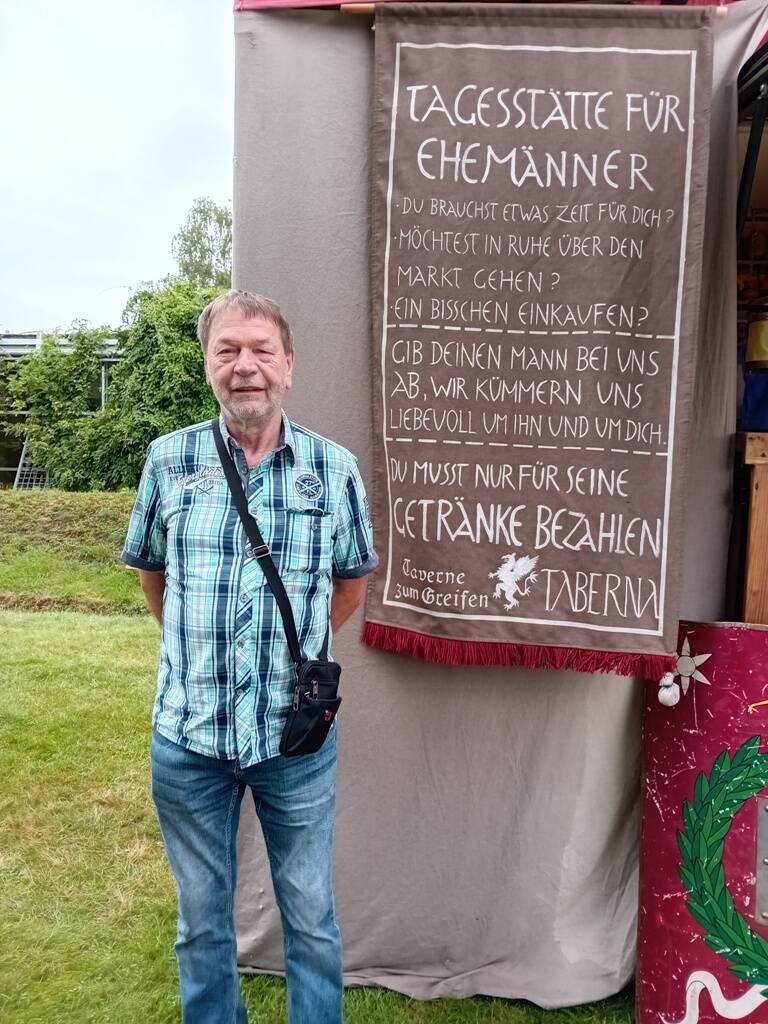 TAGESSTÄTTE FÜR
EHEMÄNNER
· DU BRAUCHST ETWAS ZEIT FÜR DICH?
· MÖCHTEST IN RUHE ÜBER DEN
MARKT GEHEN?
· EIN BISSCHEN EINKAUFEN?
GIB DEINEN MANN BEI UNS
AB, WIR KÜMMERN UNS
LIEBEVOLL UM IHN UND UM DICH.
DU MUSST NUR FÜR SEINE
GETRÄNKE BEZAHLEN
Taverne
zum Greifen
TABERNA